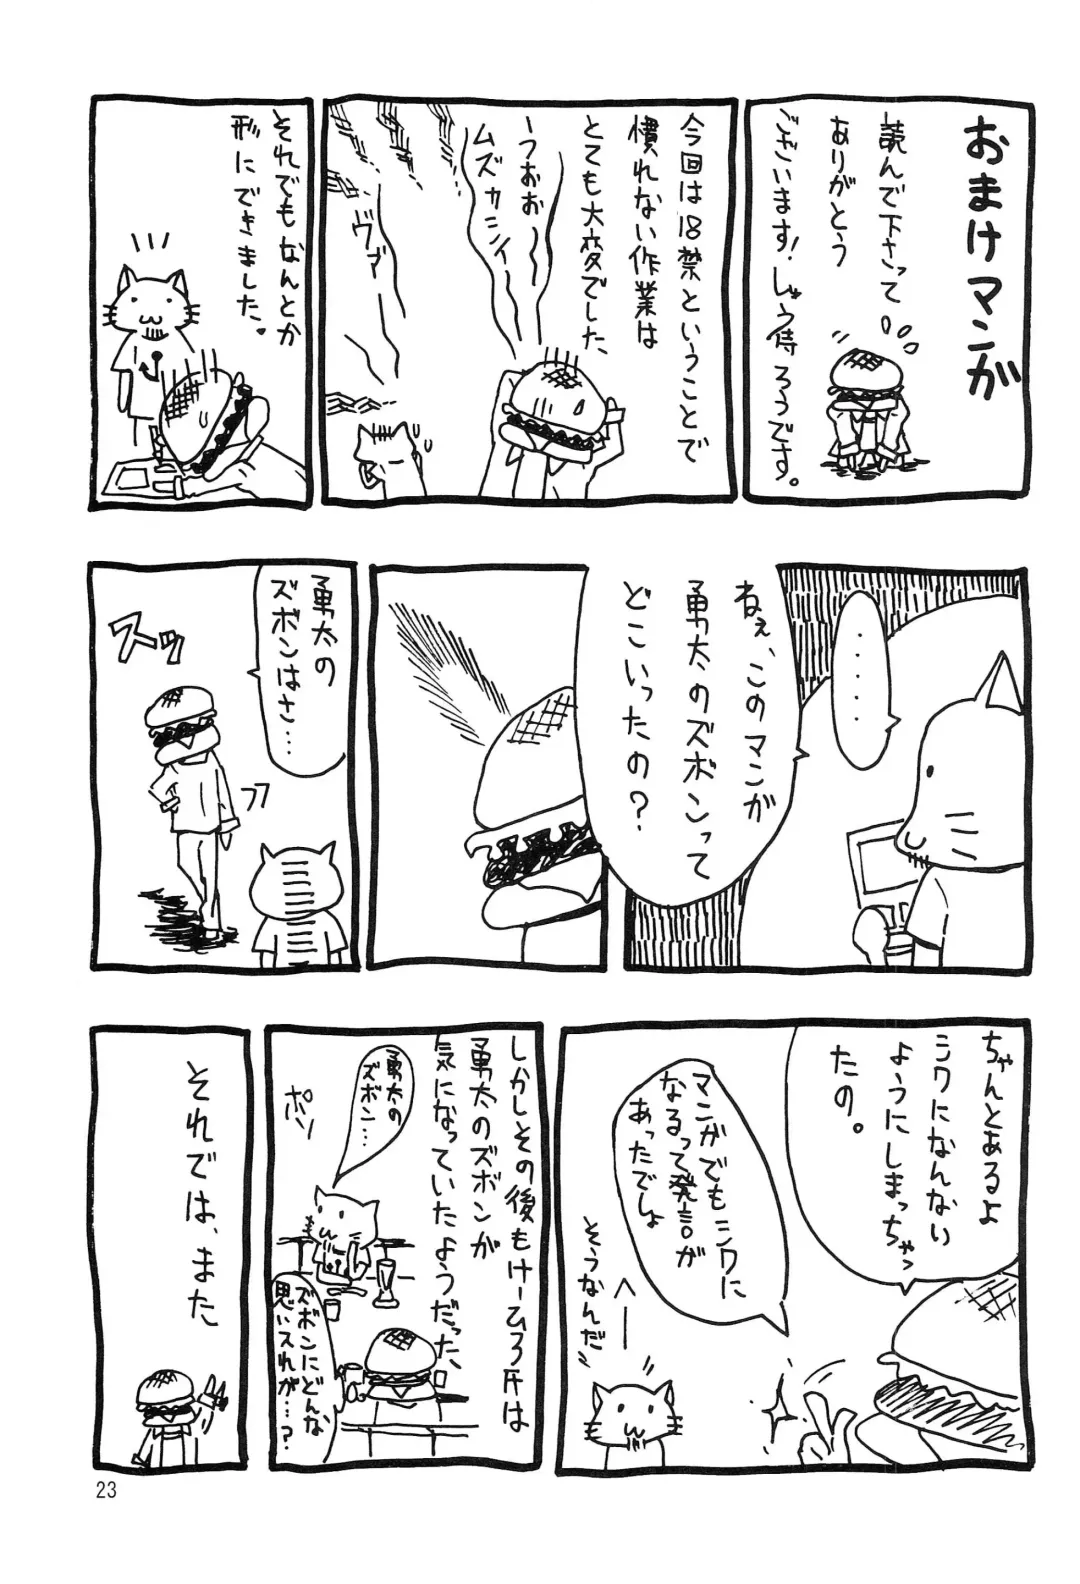 おまけマンガ
読んで下さって
ありがとう
ございます!しゅう侍ろうです。
今回は18禁ということで
慣れない作業は
とても大変でした、
うおおー
ムズカシイー
ヴァー
それでもなんとか
形にできました。
・・・・・
ねぇ、このマンガ
勇太のズボンって
どこいったの?
勇太の
ズボンはさ…
スッ
フフ
ちゃんとあるよ
シワになんない
ようにしまっちゃっ
たの。
マンガでもシワに
なるって発言が
あったでしょ
へー
そうなんだ
しかしその後もけーむろ氏は
勇太のズボンが
気になっていたようだった、
勇太の
ズボン…
ポソッ
ズボンにどんな
思い入れが…?
それでは、また
23